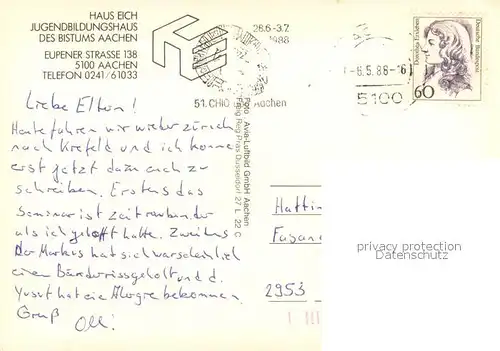 HAUS EICH
JUGENDBILDUNGSHAUS
DES BISTUMS AACHEN
EUPENER STRASSE 138
5100 AACHEN
TELEFON 0241/61033
26.6-3.7.
1988
51. CHIO Aachen
-6.5.88-16
5100
Deutsche Bundespost
Dorothea Erxleben
60
Foto Avia-Luftbild GmbH Aachen
Freig Reg Präs Düsseldorf 27 L 22 C
Liebe Eltern!
Heute fahren wir wieder zurück
nach Krefeld und ich komme
erst jetzt dazu euch zu
schreiben. Erstens das
Seminar ist zeitraubender
als ich gehofft hatte. Zweitens
Der Markus hat sich warscheinlich
einen Bänderriss geholt und d.
Yusuf hat eine Allergie bekommen.
Gruß
Olli!
Hattin
Fasane
2953
privacy protection
Datenschutz